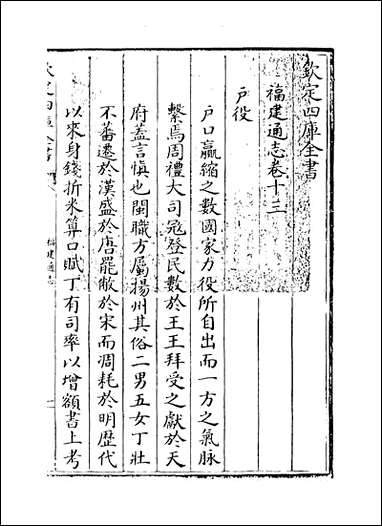 欽定四庫全書
福建通志卷十三
戶役
戶口贏縮之數國家力役所自出而一方之氣脉
繫焉周禮大司冦登民數於王王拜受之獻於天
府蓋言慎也閩職方屬揚州其俗二男五女丁壯
不蕃遷於漢盛於唐罷敝於宋而凋耗於明歷代
以來身錢折米算口賦丁有司率以增額書上考
欽定四庫全書
福建通志
一